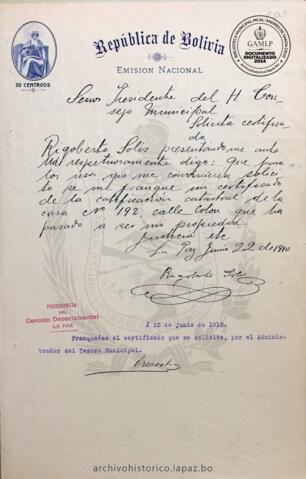 República de Bolivia
EMISION NACIONAL
50 CENTAVOS
BIBLIOTECA MUNICIPAL MCAL. ANDRES DE SANTA CRUZ
GAMLP
DOCUMENTO
DIGITALIZADO
2024
Señor Presidente del H. Con-
sejo Municipal
Solicita certifica-
do
Rigoberto Solis presentandome ante
Ud respetuosamente digo: que para
los usos que me convinieren solici-
to se me franquee un certificado
de la catificacion catastral de la
casa Nº 192, calle Colon que ha
pasado a ser mi propiedad
Justicia etc
La Paz Junio 22 de 1910
Rigoberto Solis
PRESIDENCIA
DEL
Concejo Departamental
LA PAZ
A 22 de junio de 1910.
Franquéése el certificado que se solicita, por el Adminis-
trador del Tesoro Municipal.
archivohistorico.lapaz.bo